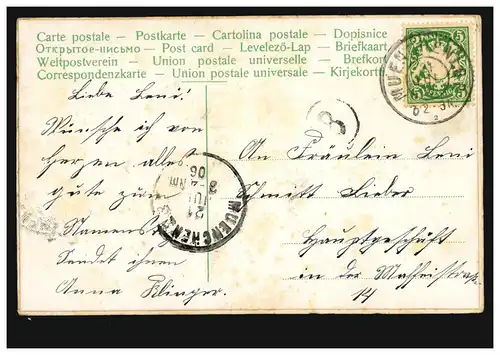 Carte postale – Postkarte – Cartolina postale – Dopisnice
Открытое-письмо – Post card – Levelező-Lap – Briefkaart
Weltpostverein – Union postale universelle – Brefkort
Correspondenzkarte – Union postale universale – Kirjekortti
5 5
5 5
MUENCHEN
8
MUENCHEN
21
JUL
06
Liebe Leni!
Wünsche ich von
Herzen alles
gute zum
Namenstag
Sendet ihnen
Anna Klinger.
An Fräulein Leni
Schmitt Lieber
Hauptgeschäft
in der Maffeistraße
14